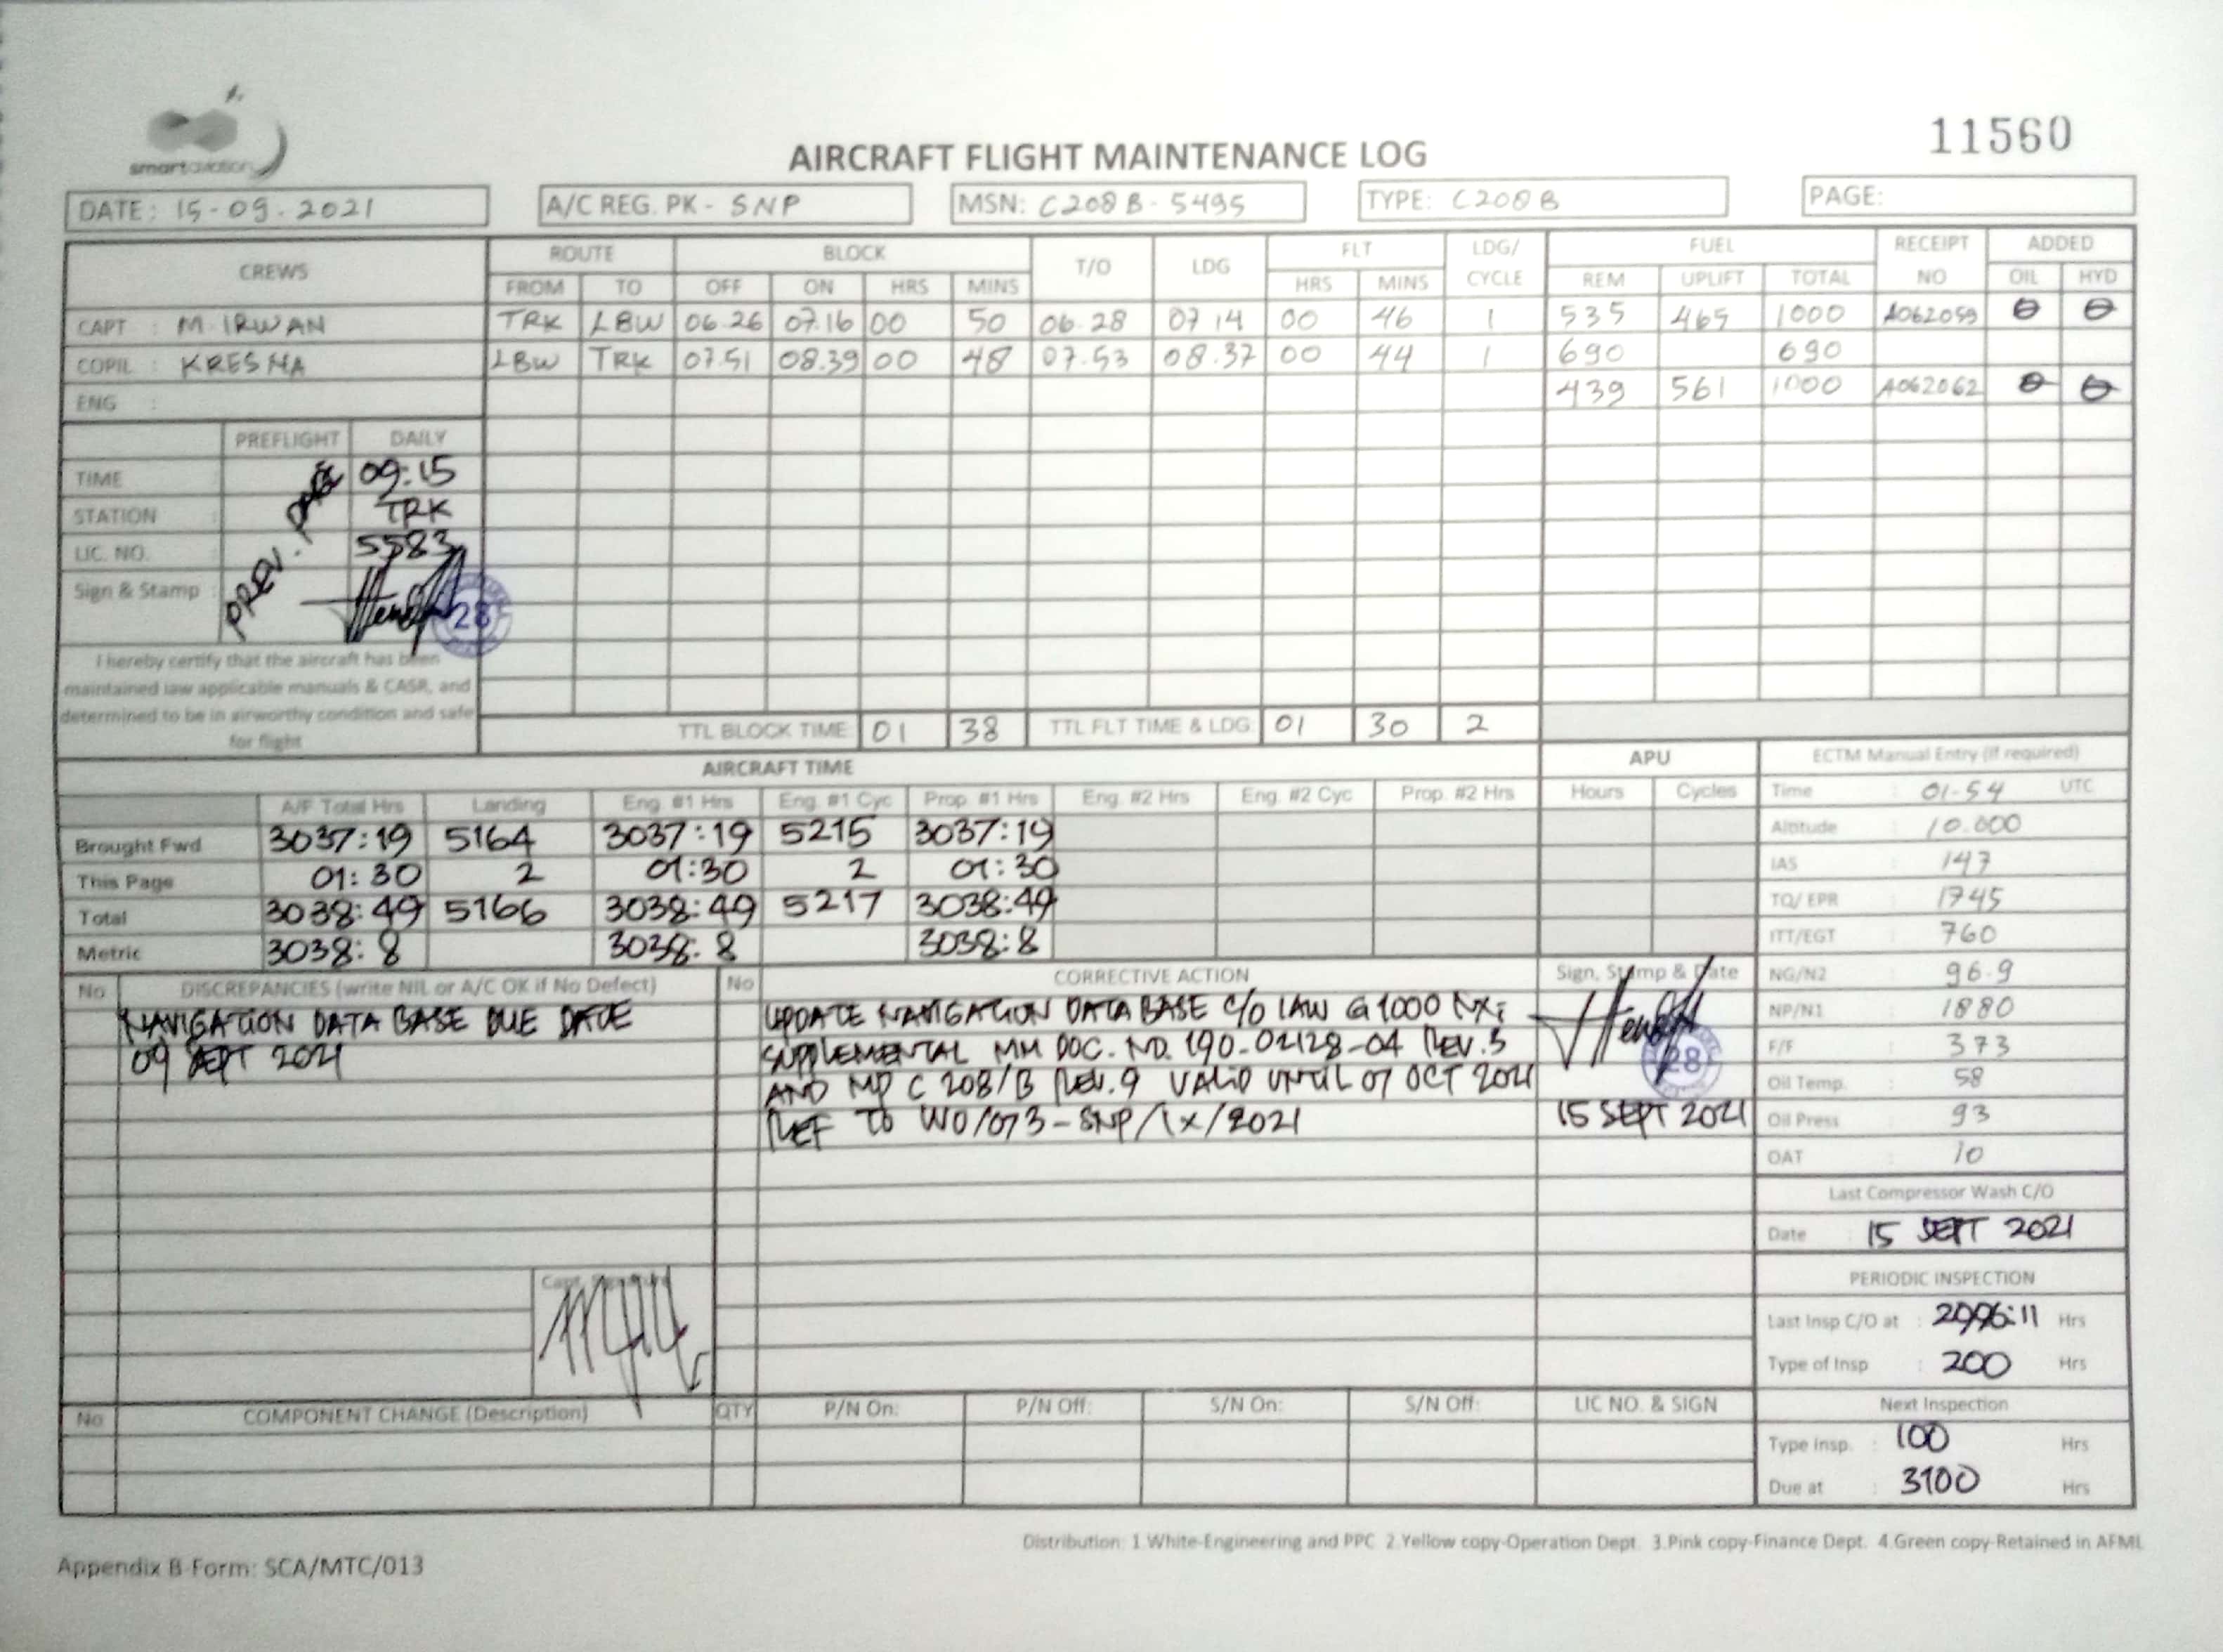 smart aviation
11560
AIRCRAFT FLIGHT MAINTENANCE LOG
DATE: 15-09.2021 A/C REG. PK - SNP MSN: C208B-5495 TYPE: C208B PAGE:
CREWS ROUTE BLOCK T/O LDG FLT LDG/ CYCLE FUEL RECEIPT NO ADDED
FROM TO OFF ON HRS MINS HRS MINS REM UPLIFT TOTAL OIL HYD
CAPT : M. IRWAN TRK LBW 06.26 07.16 00 50 06.28 07 14 00 46 1 535 465 1000 A062059 0 0
COPIL : KRESNA LBW TRK 07.51 08.39 00 48 07.53 08.37 00 44 1 690 690
ENG : 439 561 1000 A062062 0 0
PREFLIGHT DAILY
TIME : 09:15
STATION : TRK
LIC. NO. 5583
PREV. PAGE
Sign & Stamp : 28
I hereby certify that the aircraft has been
maintained iaw applicable manuals & CASR, and
determined to be in airworthy condition and safe
for flight
TTL BLOCK TIME 01 38 TTL FLT TIME & LDG 01 30 2
AIRCRAFT TIME APU ECTM Manual Entry (if required)
A/F Total Hrs Landing Eng. #1 Hrs Eng. #1 Cyc Prop. #1 Hrs Eng. #2 Hrs Eng. #2 Cyc Prop. #2 Hrs Hours Cycles Time : 01-54 UTC
Brought Fwd 3037:19 5164 3037:19 5215 3037:19 Altitude : 10.000
This Page 01:30 2 01:30 2 01:30 IAS : 147
Total 3038:49 5166 3038:49 5217 3038:49 TQ/ EPR : 1745
Metric 3038:8 3038:8 3038:8 ITT/EGT : 760
No DISCREPANCIES (write NIL or A/C OK if No Defect) No CORRECTIVE ACTION Sign, Stamp & Date NG/N2 : 96.9
NAVIGATION DATA BASE DUE DATE UPDATE NAVIGATION DATA BASE C/O IAW G1000 NXi NP/N1 : 1880
09 SEPT 2021 SUPPLEMENTAL MM DOC. NO. 190-02128-04 REV.3 28 F/F : 373
AND MP C 208/B REV.9 VALID UNTIL 07 OCT 2021 Oil Temp. : 58
REF TO WO/073-SNP/IX/2021 15 SEPT 2021 Oil Press : 93
OAT : 10
Last Compressor Wash C/O
Date : 15 SEPT 2021
Capt. Signature PERIODIC INSPECTION
Last Insp C/O at : 2996:11 Hrs
Type of Insp : 200 Hrs
No COMPONENT CHANGE (Description) QTY P/N On: P/N Off: S/N On: S/N Off: LIC NO. & SIGN Next Inspection
Type Insp. : 100 Hrs
Due at : 3100 Hrs
Distribution: 1.White-Engineering and PPC 2.Yellow copy-Operation Dept. 3.Pink copy-Finance Dept. 4.Green copy-Retained in AFML
Appendix B-Form: SCA/MTC/013